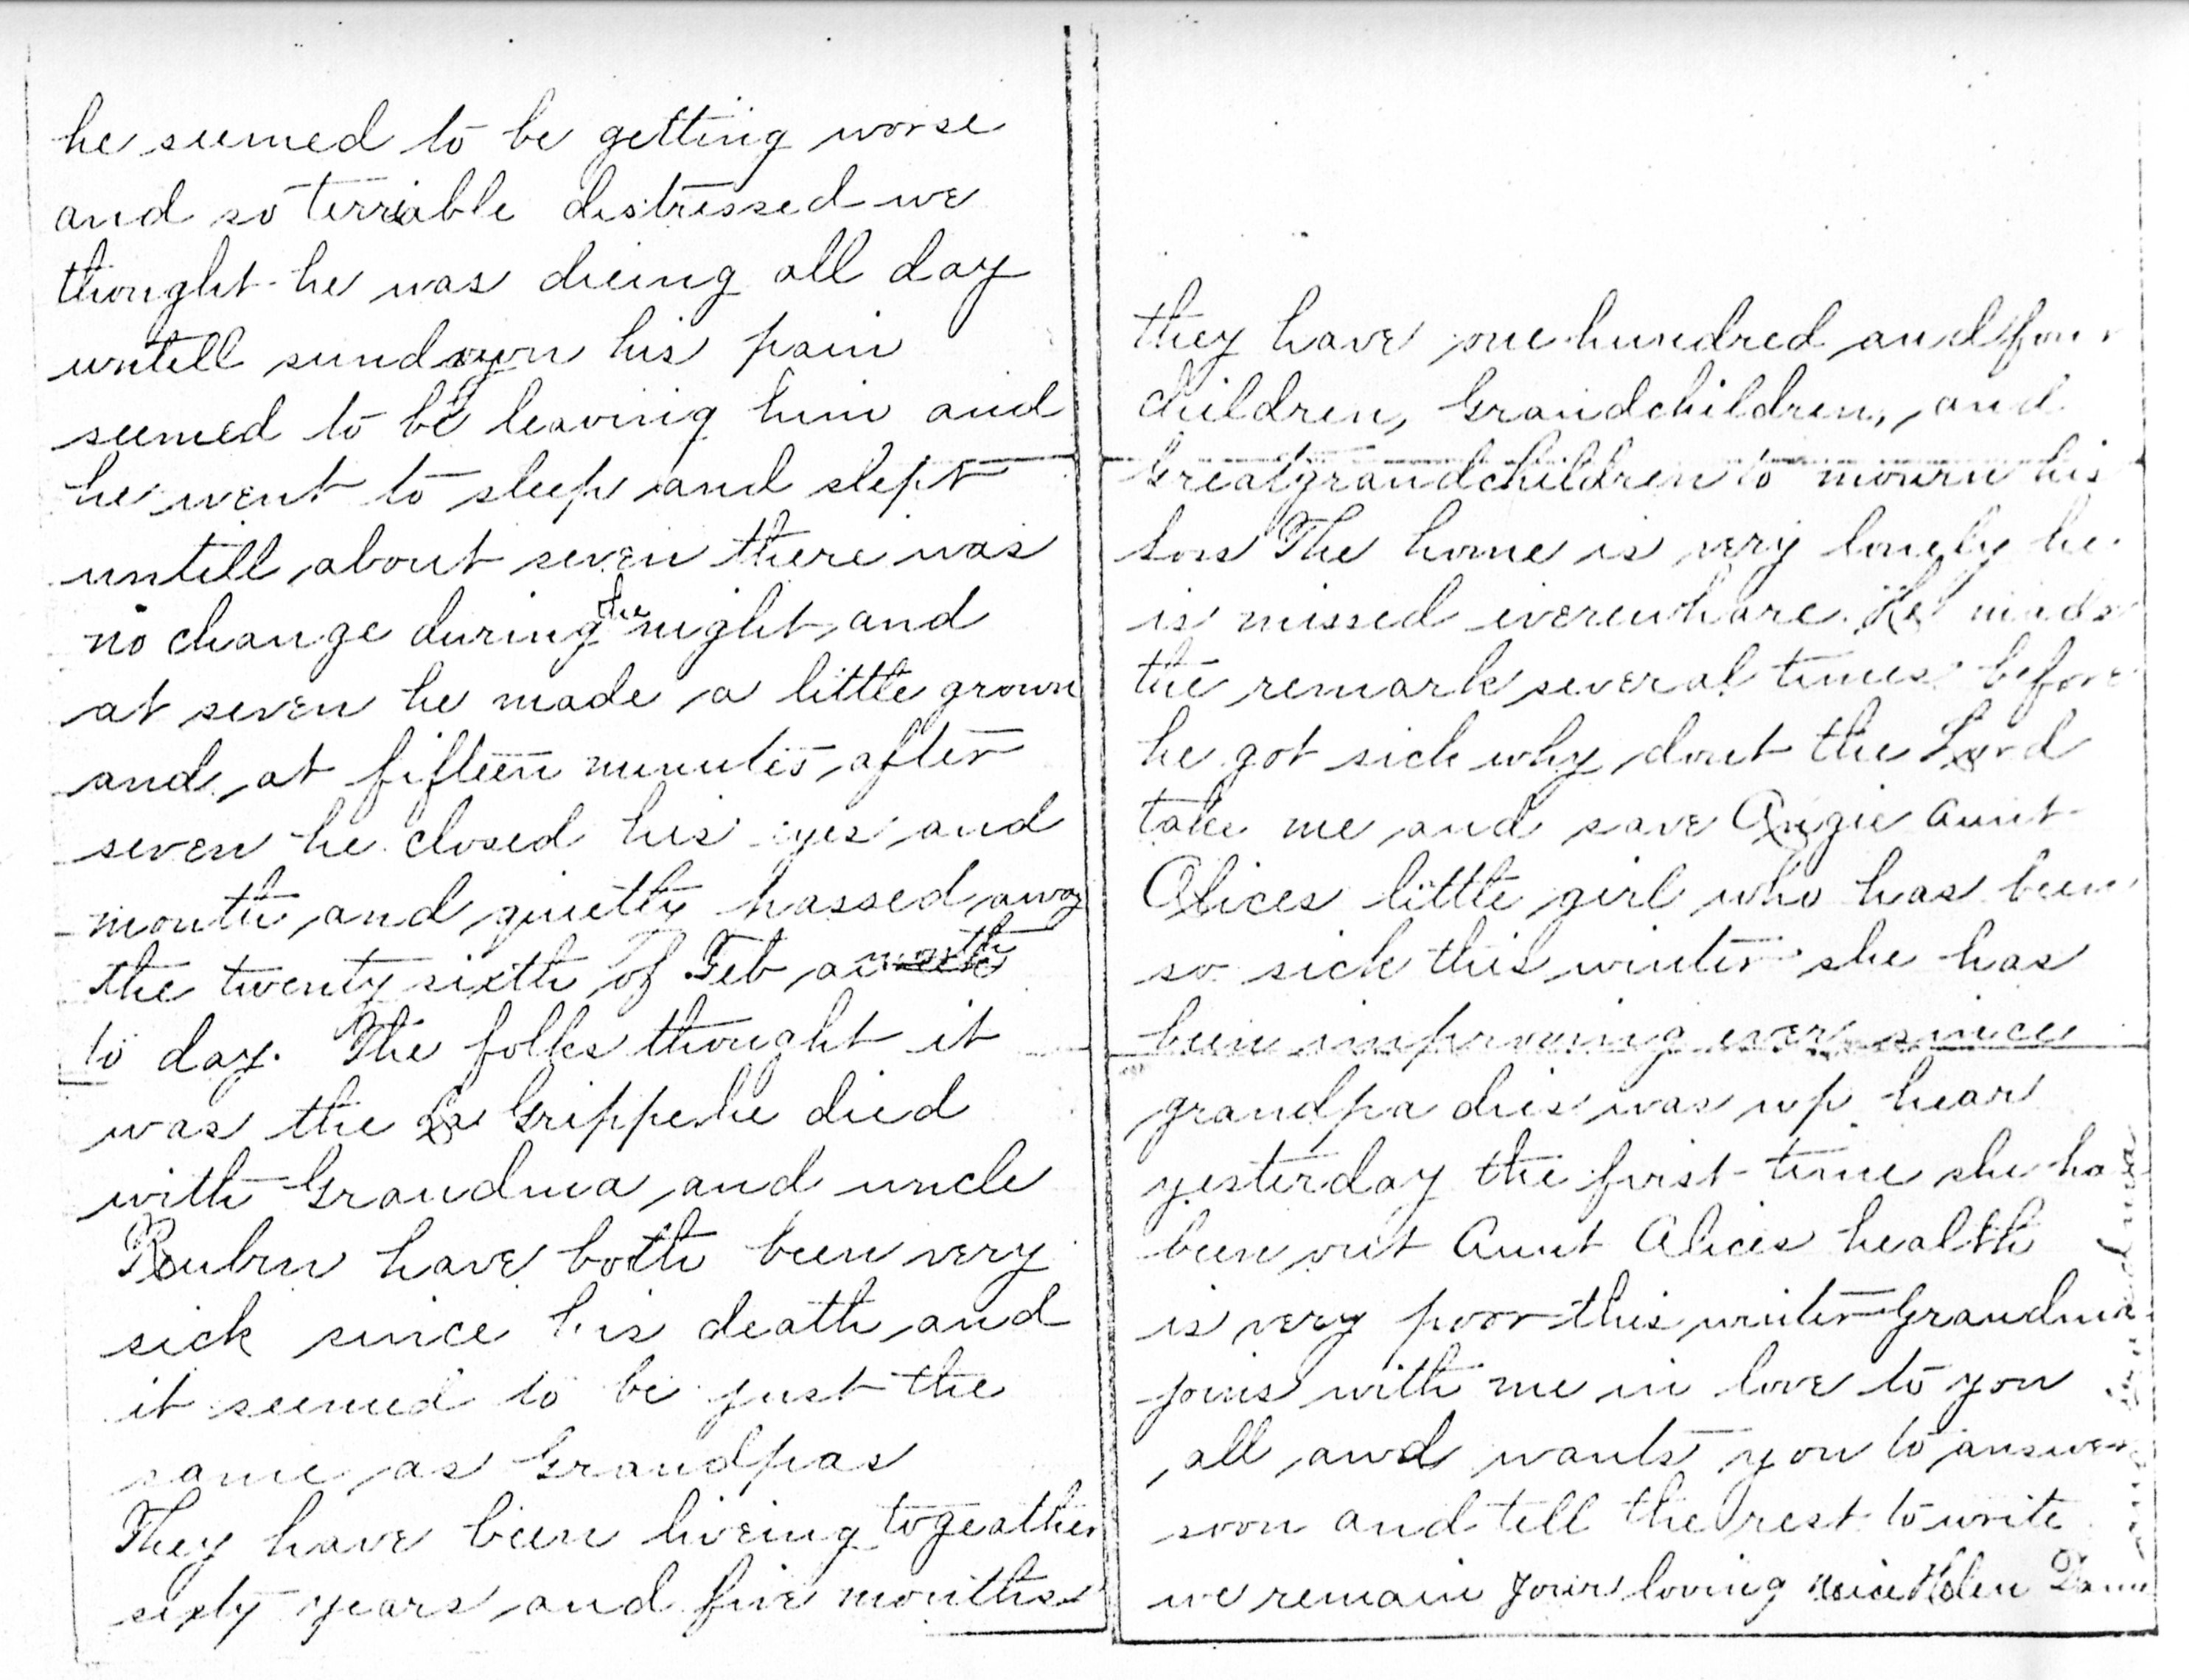 he seemed to be getting worse
and so terriable distressed we
thought he was dieing all day
untill sundown his pain
seemed to be leaving him and
he went to sleep and slept
untill about seven there was
no change during the night and
at seven he made a little grown
and at fifteen minutes after
seven he closed his eyes and
mouth and quietly passed away
the twenty sixth of Feb a month
to day. The folks thought it
was the La Grippe he died
with Grandma and uncle
Reuben have both been very
sick since his death and
it seemed to be just the
same as Grandpas
They have been liveing togeather
sixty years and five months
they have one hundred and four
children, Grandchildren, and
Greatgrandchildren to mourn his
loss The home is very lonely he
is missed everewhare. He made
the remark several times before
he got sick why dont the Lord
take me and save Angie Aunt
Alices little girl who has been
so sick this winter she has
been improveing ever since
grandpa dies was up hear
yesterday the first time she has
been out Aunt Alices health
is very poor this winter Grandma
joins with me in love to you
all and wants you to answer
soon and tell the rest to write
we remain your loving neice Helen